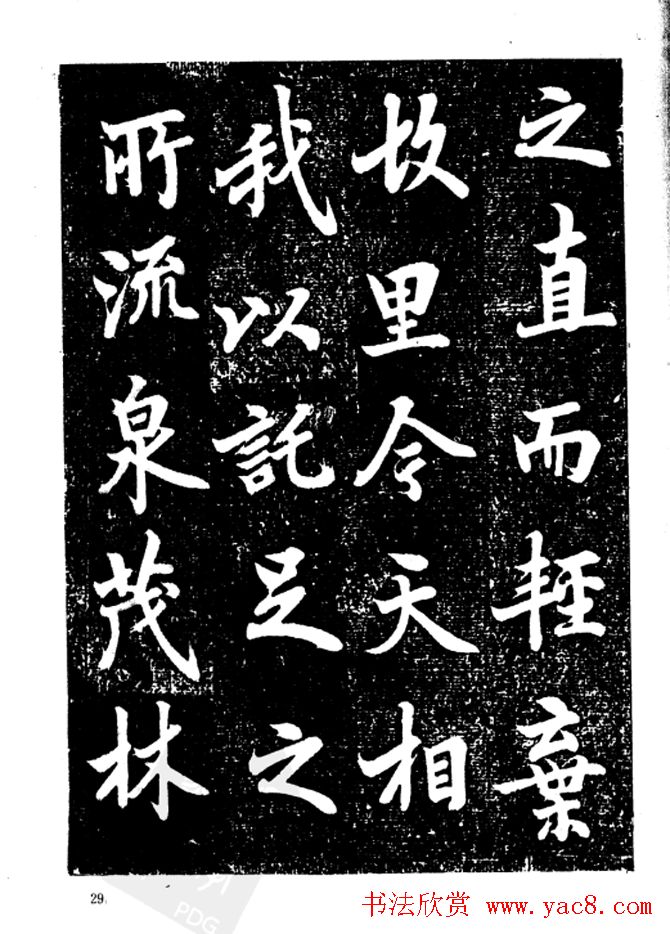 之直而輕棄
故里今天相
我以託足之
所流泉茂林
29
书法欣赏 www.yac8.com
PDG